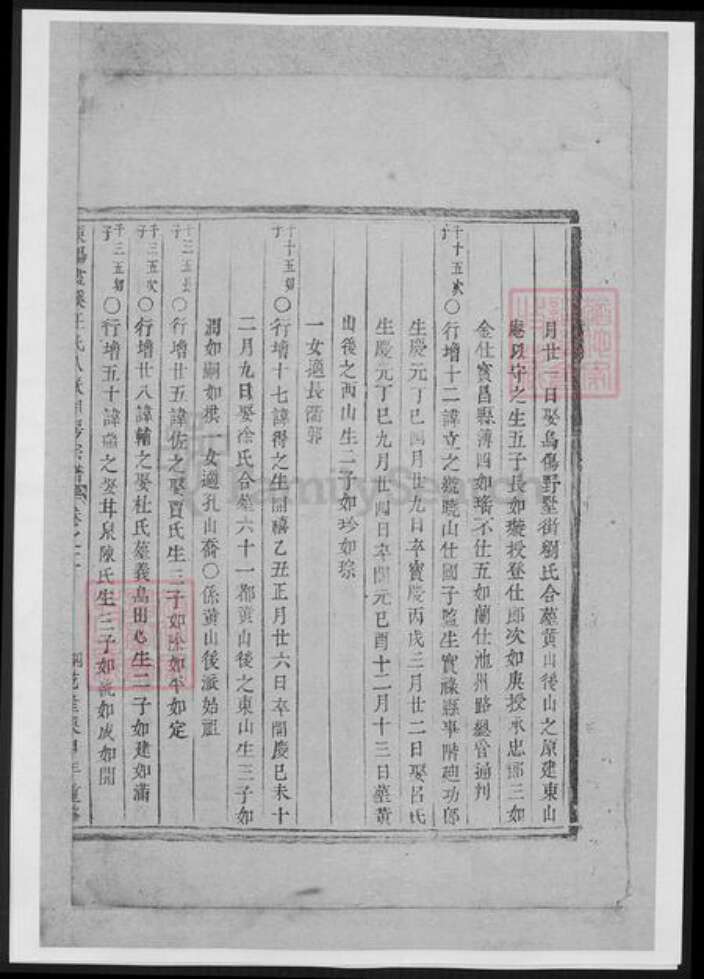 月廿一日娶烏傷野墅街劉氏合墓黃山後山之原建東山
庵以守之生五子長如璇授登仕郎次如庚授承忠郎三如
金仕寶昌縣簿四如璠不仕五如蘭仕池州路總管通判
千十五次子〇行增十二諱立之號曉山仕國子監生實祿縣事階迪功郎
生慶元丁巳四月廿九日卒寶慶丙戌三月廿二日娶呂氏
生慶元丁巳九月廿四日卒開元己酉十二月十三日墓黃
山後之西山生二子如珍如琮
一女適長衢郭
千十五幼子〇行增十七諱得之生開禧乙丑正月廿六日卒開慶己未十
二月九日娶徐氏合墓六十一都黃山後之東山生三子如
潤如嗣如棋一女適孔山喬〇係黃山後派始祖
千三五長子〇行增廿五諱佐之娶賈氏生三子如除如平如定
千三五次子〇行增廿八諱輔之娶杜氏墓義烏田心生二子如建如滿
千三五幼子〇行增五十諱之娶茸泉陳氏生三子如如成如開
王氏宗譜